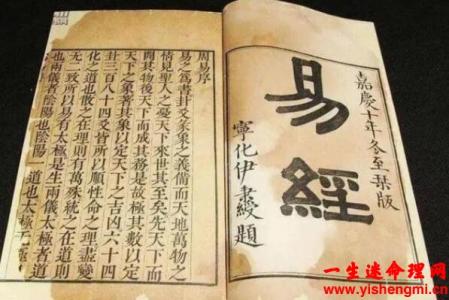 嘉慶十年冬至栞版
易經
寧化伊秉綬題
周易序
易之爲書卦爻彖象之義備而天地萬物之
情見聖人之憂天下來世其至矣先天下而
開其物後天下而成其務是故極其數以定
天下之象著其象以定天下之吉凶六十四
卦三百八十四爻皆所以順性命之理盡變
化之道也散之在理則有萬殊統之在道則
无二致所以易有太極是生兩儀太極者道
也兩儀者陰陽也陰陽一道也太極无極
一生迷命理网
www.yishengmi.cn